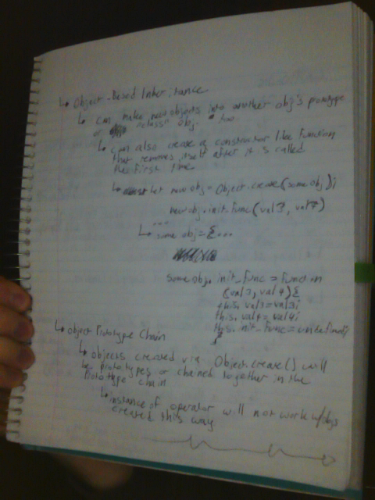 ↳ Object-Based Inheritance
↳ can make new objects into another obj's prototype
obj. too
↳ can also create a constructor like function
that removes itself after it is called
the first time.
↳ let new obj = Object.create(some obj);
new obj.init_func(val3, val4)
↳ some obj = {...
some obj. init_func = function
(val3, val4) {
this.val3 = val3;
this.val4 = val4;
this.init_func = undefined;
}
↳ Object Prototype Chain
↳ objects created via Object.create() will
be prototypes or chained together in the
prototype chain
↳ instance of operator will not work w/objs
created this way